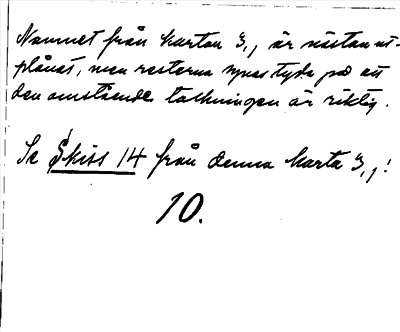 Namnet från kartan 3,1 är nästan ut-
plånat, men resterna synes tyda på att
den omstående tolkningen är riktig.
Se Skiss 14 från denna karta 3,1!
10.